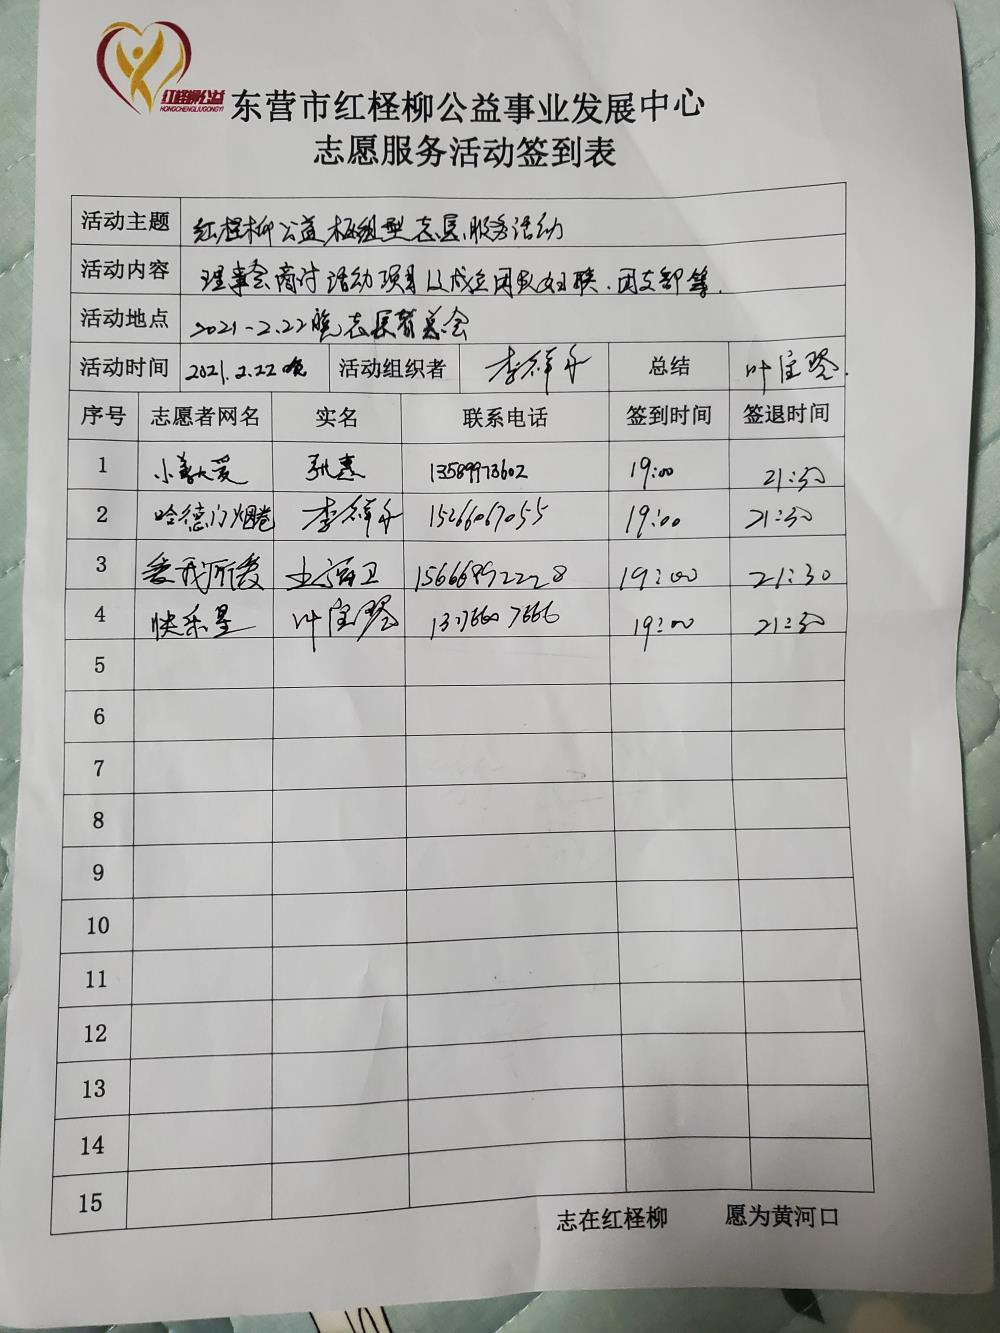 红柽柳公益
HONGCHENGLIUGONGYI
东营市红柽柳公益事业发展中心
志愿服务活动签到表
活动主题 红柽柳公益枢纽型志愿服务活动
活动内容 理事会商讨活动项目以成立团队妇联、团支部等.
活动地点 2021-2.22晚志愿者总会
活动时间 2021.2.22晚 活动组织者 李祥舟 总结 叶宝琴.
序号 志愿者网名 实名 联系电话 签到时间 签退时间
1 小善大爱 张惠 13589973602 19:00 21:30
2 哈德门烟卷 李祥舟 15266067055 19:00 21:30
3 爱我所爱 卫 15666892228 19:00 21:30
4 快乐星 叶宝琴 19:00 21:30
5
6
7
8
9
10
11
12
13
14
15
志在红柽柳 愿为黄河口